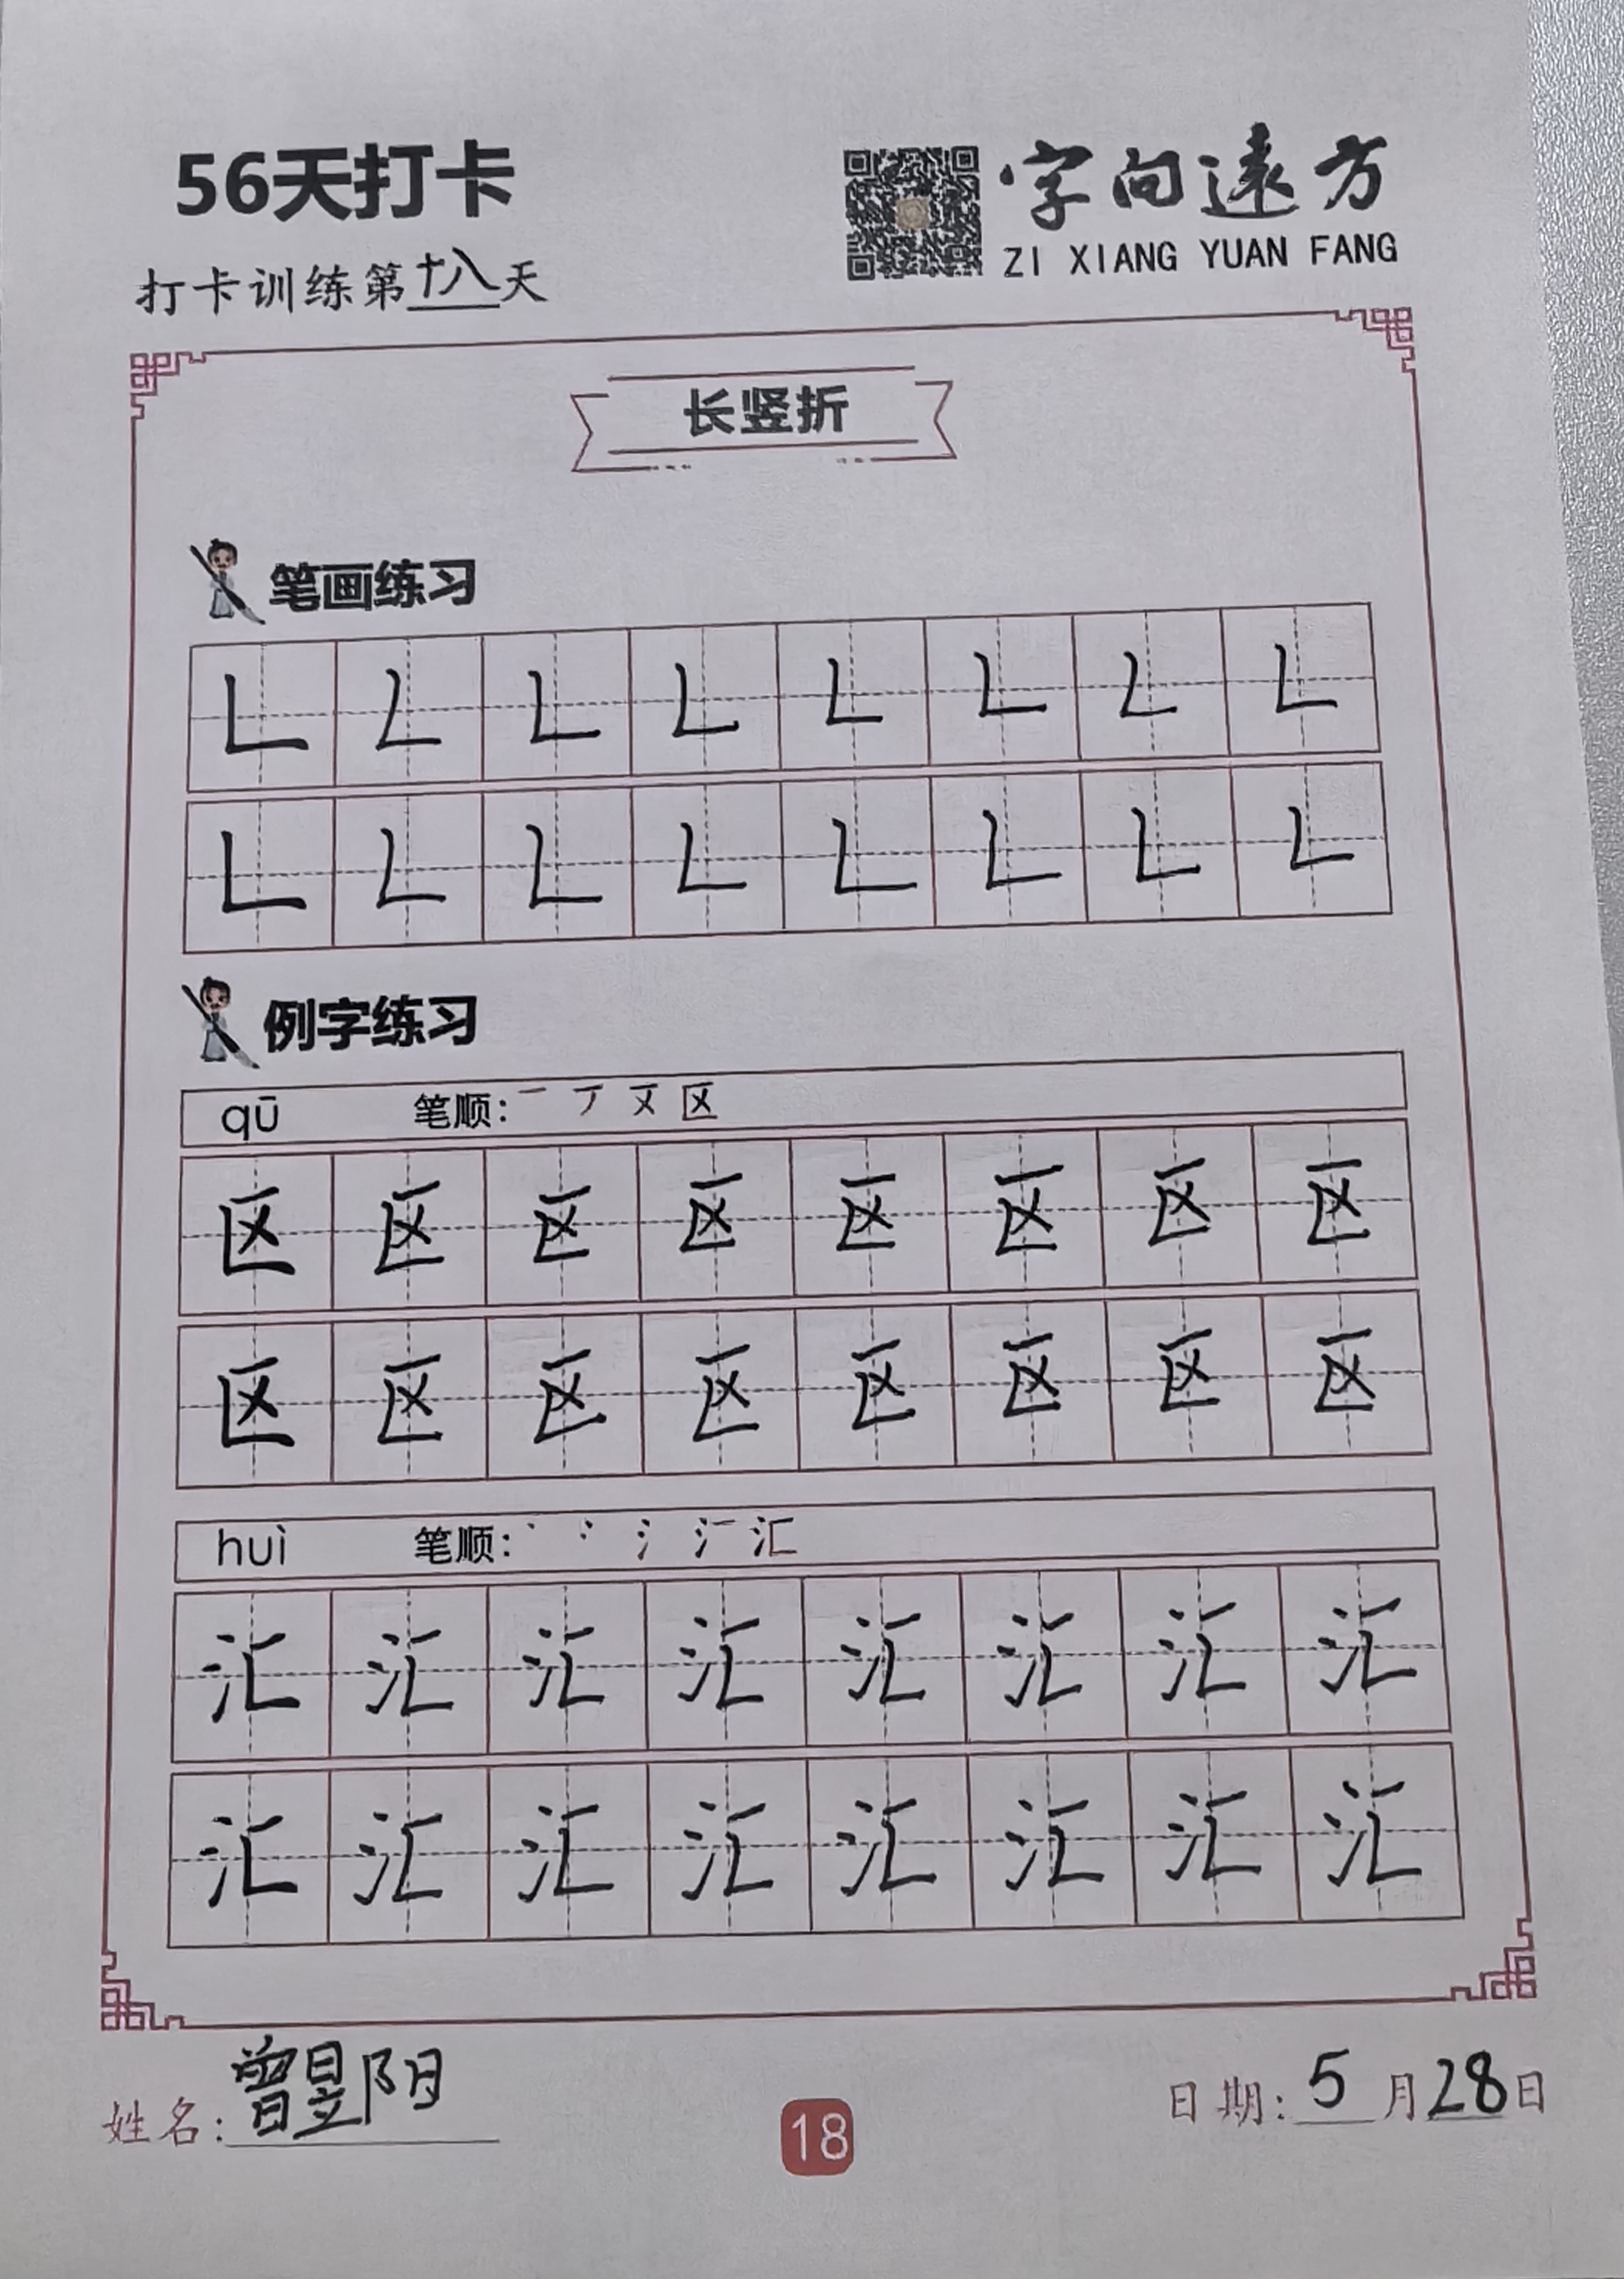 56天打卡
字向遠方
ZI XIANG YUAN FANG
打卡训练第十八天
长竖折
笔画练习
𠃊 𠃊 𠃊 𠃊 𠃊 𠃊 𠃊 𠃊
𠃊 𠃊 𠃊 𠃊 𠃊 𠃊 𠃊 𠃊
例字练习
qū 笔顺: 一 丆 区
区 区 区 区 区 区 区 区
区 区 区 区 区 区 区 区
huì 笔顺: 丶 冫 氵 汇
汇 汇 汇 汇 汇 汇 汇 汇
汇 汇 汇 汇 汇 汇 汇 汇
姓名: 曾昱阴
18
日期: 5月28日